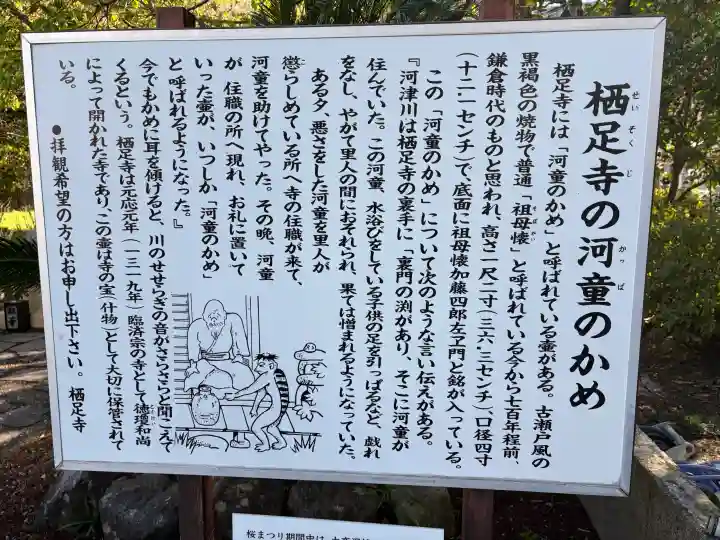 栖足寺の河童のかめ
せいそくじ
かっぱ
栖足寺には「河童のかめ」と呼ばれている壺がある。古瀬戸風の
黒褐色の焼物で普通「祖母懐」と呼ばれている今から七百年程前、
そぼかい
鎌倉時代のものと思われ、高さ一尺二寸(三六・三センチ)、口径四寸
(十二・一センチ)で、底面に祖母懐加藤四郎左ヱ門と銘が入っている。
この「河童のかめ」について次のような言い伝えがある。
『河津川は栖足寺の裏手に「裏門の渕があり、そこに河童が
住んでいた。この河童、水浴びをしている子供の足を引っぱるなど、戯れ
をなし、やがて里人の間におそれられ、果ては憎まれるようになっていた。
ある夕、悪さをした河童を里人が
懲らしめている所へ寺の住職が来て、
こ
河童を助けてやった。その晩、河童
が 住職の所へ現れ、お礼に置いて
いった壺が、いつしか「河童のかめ」
と呼ばれるようになった。』
今でもかめに耳を傾けると、川のせせらぎの音がさらさらと聞こえて
くるという。栖足寺は元応元年(一三一九年)臨済宗の寺として徳瓊和尚
によって開かれた寺であり、この壺は寺の宝(什物)として大切に保管されて
いる。
●拝観希望の方はお申し出下さい。 栖足寺
桜まつり期間中は、